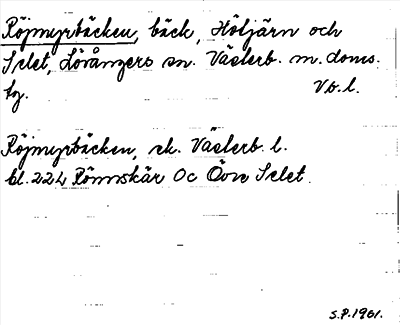 Röjmyrbäcken, bäck, Höljärn och
Selet, Lövångers sn. Västerb. m. doms.
tg. Vb. l.
Röjmyrbäcken, ek. Västerb. l.
bl. 22 L Rönnskär Oc Övre Selet.
S.P. 1961.